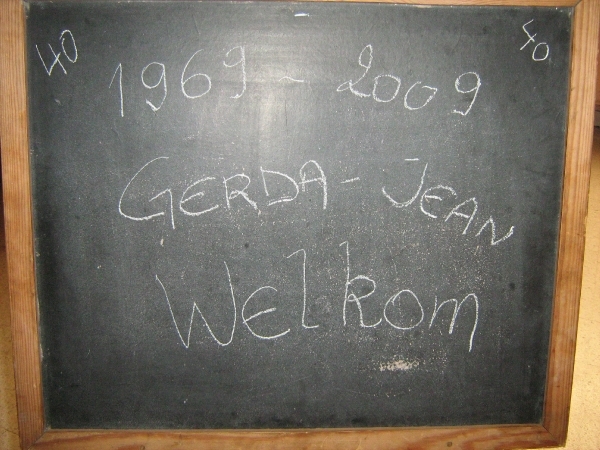 40 40
1969 - 2009
GERDA - JEAN
Welkom